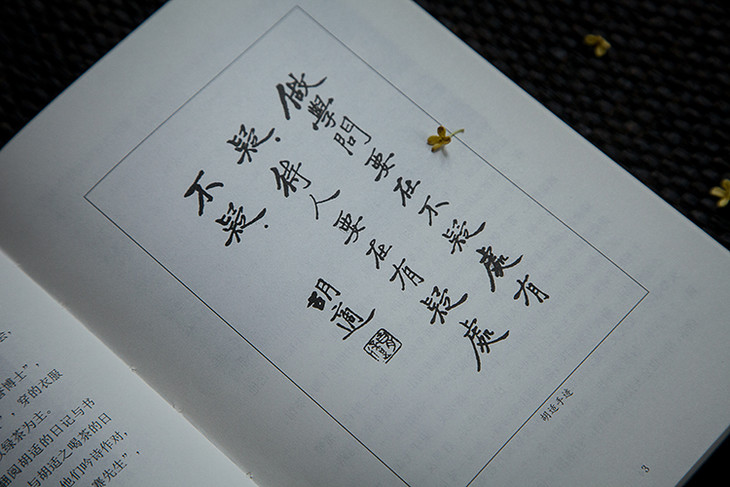 做學問要在不疑處有
疑.待人要在有疑處
不疑.
胡適
胡适手迹
3
博士”，
，穿的衣服
绿茶为主。
翻阅胡适的日记与书
与胡适之喝茶的日
他们吟诗作对，
先生”，